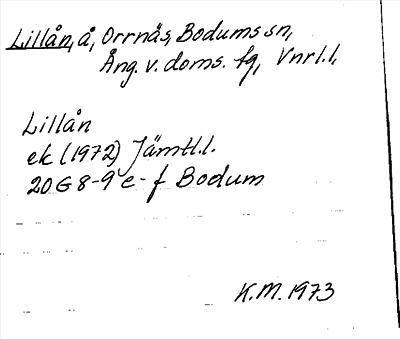 Lillån, å, Orrnäs, Bodums sn,
Ång. v. doms. fg, Vnrl.l,
Lillån
ek (1972) Jämtl.l.
20 G 8-9 e-f Bodum
K.M. 1973